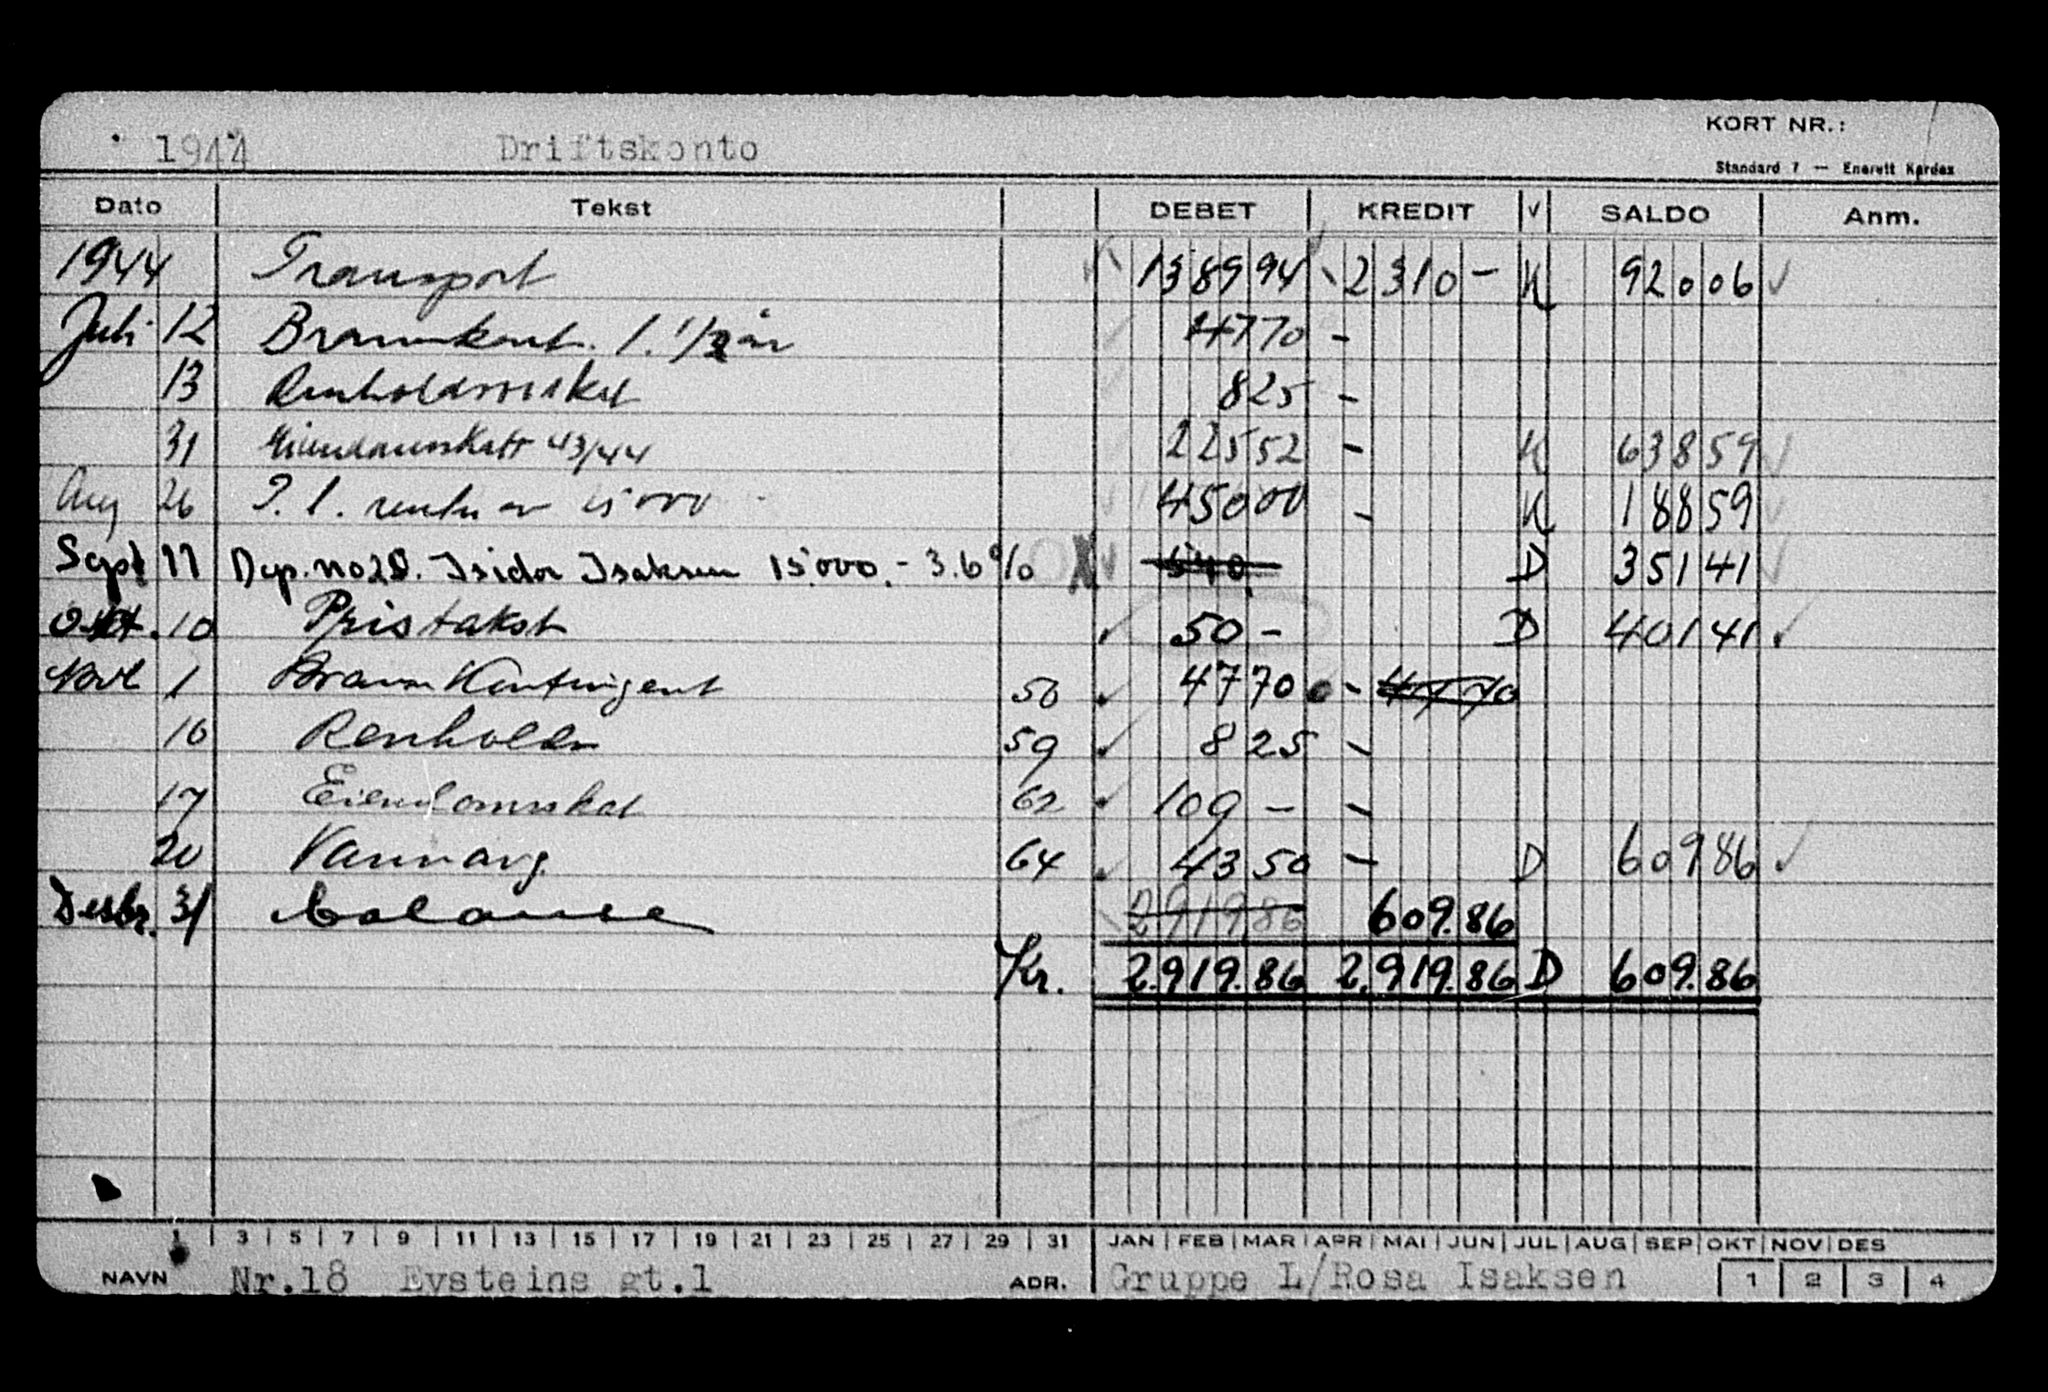 1944 Driftskonto KORT NR.:
Standard 7 — Enerett Kardex
Dato Tekst DEBET KREDIT V SALDO Anm.
1944 Transport 1389 94 2310 - K 920 06
Juli 12 Brannkont. 1. 1/2 år 47 70 -
13 Renholdsverket 8 25 -
31 Eiendomsskatt 43/44 225 52 - K 638 59
Aug 26 P. l. renter av 15000 450 00 - K 188 59
Sept 11 Dep. no 28. Isidor Isaksen 15.000.- 3.6 % 540. D 351 41
Okt. 10 Pristakst 50 - D 401 41
Novb 1 Brann Kontingent 56 47 70 - 47 70
16 Renholdn 59 8 25 -
17 Eiendomsskat 62 109 - -
20 Vannavg. 64 43 50 - D 609 86
Desbr. 31 balanse 2919 86 609.86
Kr. 2.919.86 2.919.86 D 609.86
1 3 5 7 9 11 13 15 17 19 21 23 25 27 29 31 JAN FEB MAR APR MAI JUN JUL AUG SEP OKT NOV DES
NAVN Nr.18 Eysteins gt.1 ADR. Gruppe L/Rosa Isaksen 1 2 3 4